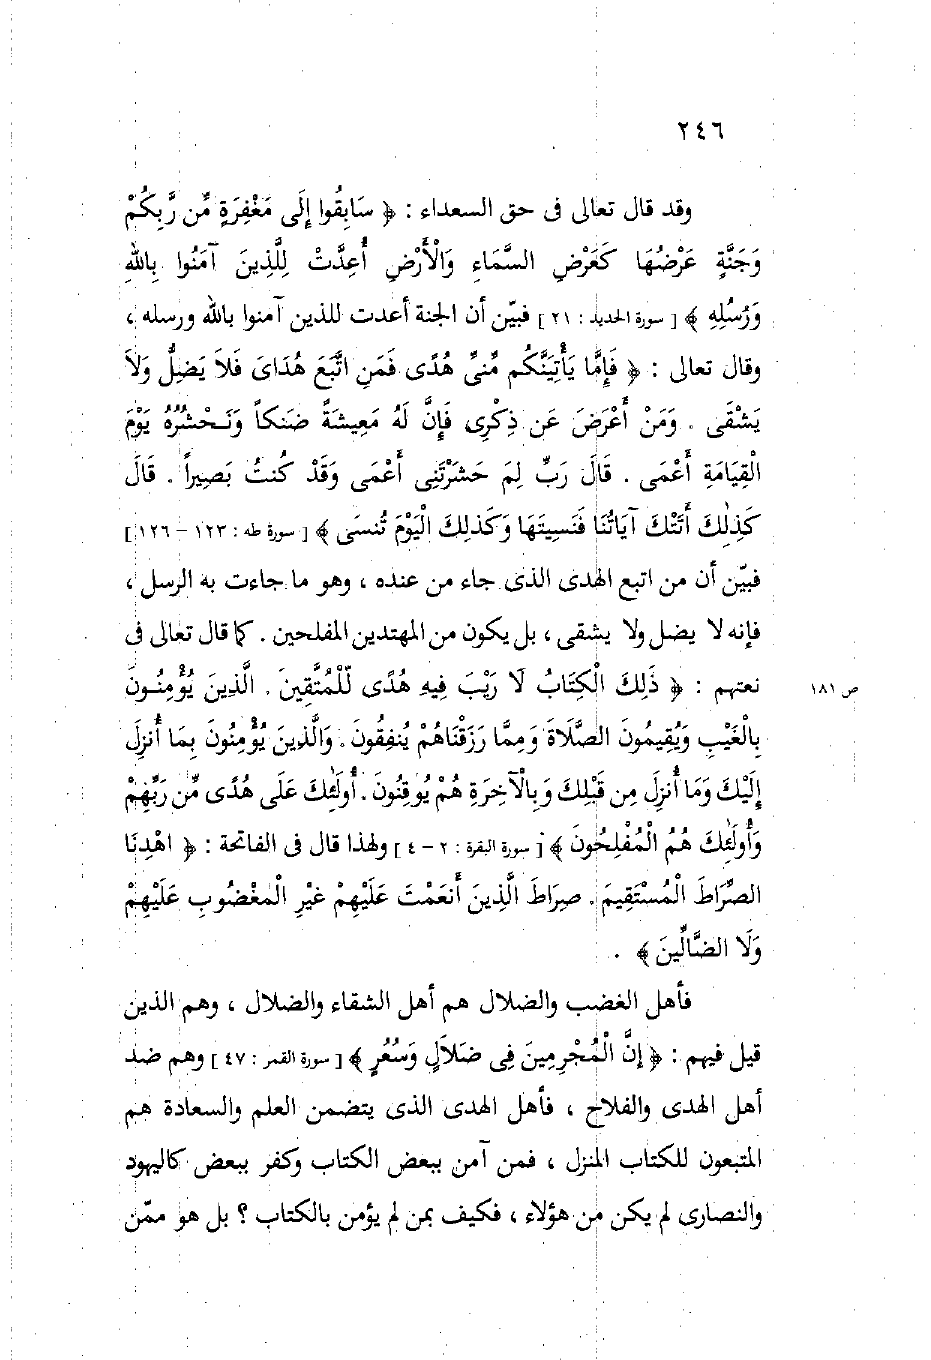 ٢٤٦
وقد قال تعالى فى حق السعداء : ﴿ سَابِقُوا إِلَى مَغْفِرَةٍ مِّن رَّبِّكُمْ
وَجَنَّةٍ عَرْضُهَا كَعَرْضِ السَّمَاءِ وَالْأَرْضِ أُعِدَّتْ لِلَّذِينَ آمَنُوا بِاللهِ
وَرُسُلِهِ ﴾ [ سورة الحديد : ٢١ ] فبيّن أن الجنة أعدت للذين آمنوا بالله ورسله ،
وقال تعالى : ﴿ فَإِمَّا يَأْتِيَنَّكُم مِّنِّى هُدًى فَمَنِ اتَّبَعَ هُدَاىَ فَلاَ يَضِلُّ وَلاَ
يَشْقَى . وَمَنْ أَعْرَضَ عَن ذِكْرِى فَإِنَّ لَهُ مَعِيشَةً ضَنكاً وَنَحْشُرُهُ يَوْمَ
الْقِيَامَةِ أَعْمَى . قَالَ رَبِّ لِمَ حَشَرْتَنِى أَعْمَى وَقَدْ كُنتُ بَصِيراً . قَالَ
كَذٰلِكَ أَتَتْكَ آيَاتُنَا فَنَسِيتَهَا وَكَذلِكَ الْيَوْمَ تُنسَى ﴾ [ سورة طه : ١٢٣ - ١٢٦ ]
فبيّن أن من اتبع الهدى الذى جاء من عنده ، وهو ما جاءت به الرسل ،
فإنه لا يضل ولا يشقى ، بل يكون من المهتدين المفلحين . كما قال تعالى فى
نعتهم : ﴿ ذَلِكَ الْكِتَابُ لَا رَيْبَ فِيهِ هُدًى لِّلْمُتَّقِينَ . الَّذِينَ يُؤْمِنُونَ
ص ١٨١
بِالْغَيْبِ وَيُقِيمُونَ الصَّلَاةَ وَمِمَّا رَزَقْنَاهُمْ يُنفِقُونَ . وَالَّذِينَ يُؤْمِنُونَ بِمَا أُنزِلَ
إِلَيْكَ وَمَا أُنزِلَ مِن قَبْلِكَ وَبِالْآخِرَةِ هُمْ يُوقِنُونَ . أُولَٰئِكَ عَلَى هُدًى مِّن رَبِّهِمْ
وَأُولَٰئِكَ هُمُ الْمُفْلِحُونَ ﴾ [ سورة البقرة : ٢ - ٤ ] ولهذا قال فى الفاتحة : ﴿ اهْدِنَا
الصِّرَاطَ الْمُسْتَقِيمَ . صِرَاطَ الَّذِينَ أَنعَمْتَ عَلَيْهِمْ غَيْرِ الْمَغْضُوبِ عَلَيْهِمْ
وَلَا الضَّالِّينَ ﴾ .
فأهل الغضب والضلال هم أهل الشقاء والضلال ، وهم الذين
قيل فيهم : ﴿ إِنَّ الْمُجْرِمِينَ فِى ضَلَالٍ وَسُعُرٍ ﴾ [ سورة القمر : ٤٧ ] وهم ضد
أهل الهدى والفلاح ، فأهل الهدى الذى يتضمن العلم والسعادة هم
المتبعون للكتاب المنزل ، فمن آمن ببعض الكتاب وكفر ببعض كاليهود
والنصارى لم يكن من هؤلاء ، فكيف بمن لم يؤمن بالكتاب ؟ بل هو ممّن